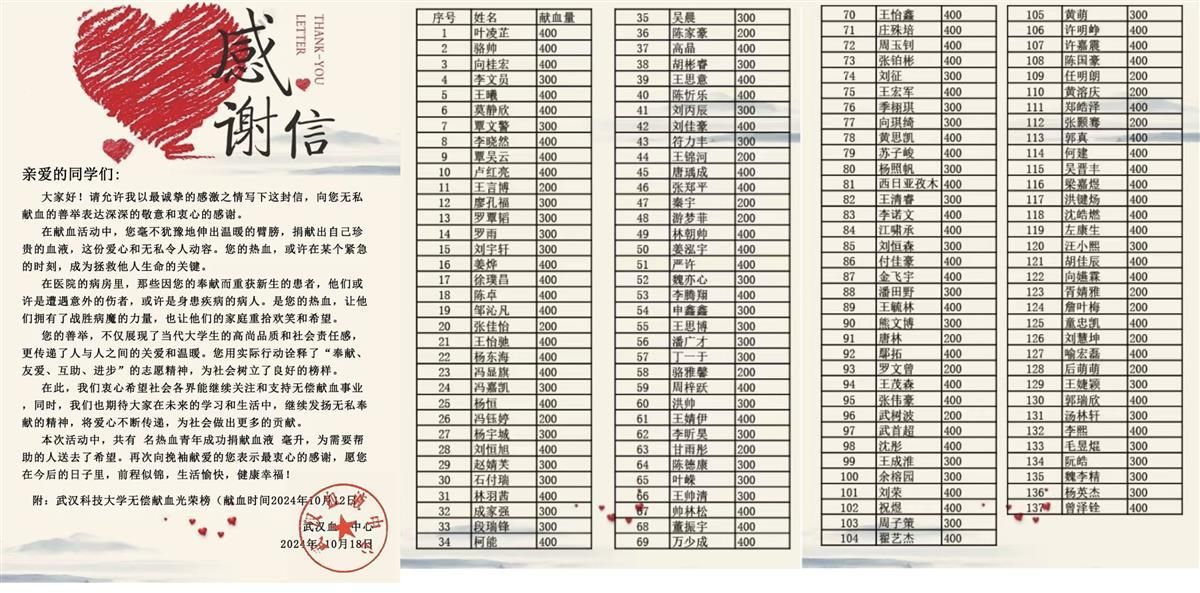 感谢信
THANK-YOU
LETTER
亲爱的同学们：
大家好！请允许我以最诚挚的感激之情写下这封信，向您无私
献血的善举表达深深的敬意和衷心的感谢。
在献血活动中，您毫不犹豫地伸出温暖的臂膀，捐献出自己珍
贵的血液，这份爱心和无私令人动容。您的热血，或许在某个紧急
的时刻，成为拯救他人生命的关键。
在医院的病房里，那些因您的奉献而重获新生的患者，他们或
许是遭遇意外的伤者，或许是身患疾病的病人。是您的热血，让他
们拥有了战胜病魔的力量，也让他们的家庭重拾欢笑和希望。
您的善举，不仅展现了当代大学生的高尚品质和社会责任感，
更传递了人与人之间的关爱和温暖。您用实际行动诠释了“奉献、
友爱、互助、进步”的志愿精神，为社会树立了良好的榜样。
在此，我们衷心希望社会各界能继续关注和支持无偿献血事业
，同时，我们也期待大家在未来的学习和生活中，继续发扬无私奉
献的精神，将爱心不断传递，为社会做出更多的贡献。
本次活动中，共有 名热血青年成功捐献血液 毫升，为需要帮
助的人送去了希望。再次向挽袖献爱的您表示最衷心的感谢，愿您
在今后的日子里，前程似锦，生活愉快，健康幸福！
附：武汉科技大学无偿献血光荣榜（献血时间2024年10月12日）
武汉血液中心
2024年10月18日
序号 姓名 献血量
1 叶凌芷 400
2 骆帅 400
3 向桂宏 400
4 李文员 300
5 王曦 400
6 莫静欣 400
7 覃文警 300
8 李晓然 400
9 覃吴云 400
10 卢红亮 400
11 王言博 200
12 廖孔福 300
13 罗覃韬 300
14 罗雨 300
15 刘宇轩 300
16 姜烨 400
17 徐璞昌 400
18 陈卓 400
19 邹沁凡 400
20 张佳怡 200
21 王怡驰 400
22 杨东海 400
23 冯显旗 400
24 冯嘉凯 300
25 杨恒 400
26 冯钰婷 200
27 杨宇城 300
28 刘恒旭 400
29 赵婧芙 300
30 石付瑞 300
31 林羽茜 400
32 成家强 300
33 段瑞锋 300
34 柯能 400
35 吴晨 300
36 陈家豪 200
37 高晶 400
38 胡彬睿 300
39 王思意 400
40 陈忻乐 400
41 刘丙辰 300
42 刘佳豪 400
43 符力丰 300
44 王锦河 200
45 唐瑀成 400
46 张郑平 400
47 秦宇 200
48 游梦菲 200
49 林朝帅 400
50 姜泓宇 400
51 严许 400
52 魏亦心 300
53 李腾翔 400
54 申鑫鑫 300
55 王思博 300
56 潘广才 300
57 丁一于 300
58 骆雅馨 200
59 周梓跃 400
60 洪帅 300
61 王婧伊 400
62 李昕昊 300
63 甘雨彤 200
64 陈德康 300
65 叶嵘 300
66 王帅清 300
67 帅林松 400
68 董振宇 400
69 万少成 400
70 王怡鑫 400
71 庄殊培 400
72 周玉钊 400
73 张铂彬 400
74 刘征 300
75 王宏军 400
76 季栩琪 300
77 向琪绮 300
78 黄思凯 400
79 苏子峻 400
80 杨照帆 300
81 西日亚孜木 400
82 王清睿 300
83 李诺文 400
84 江啸承 400
85 刘恒森 300
86 付佳豪 400
87 金飞宇 400
88 潘田野 300
89 王毓林 400
90 熊文博 300
91 唐林 200
92 鄢拓 400
93 罗文曾 200
94 王茂森 400
95 张伟豪 400
96 武树波 200
97 武首超 400
98 沈彤 400
99 王成淮 300
100 余榕园 300
101 刘荣 400
102 祝煜 400
103 周子策 300
104 翟艺杰 400
105 黄萌 300
106 许明峥 400
107 许嘉震 400
108 陈国豪 400
109 任明朗 200
110 黄溶庆 200
111 郑皓泽 400
112 张颢骞 200
113 郭真 400
114 何建 400
115 吴晋丰 400
116 梁嘉煜 400
117 洪键炀 400
118 沈皓燃 400
119 左康生 400
120 汪小熙 300
121 胡佳辰 400
122 向嬿霖 400
123 胥婧雅 200
124 詹叶梅 200
125 童忠凯 400
126 刘慧坤 200
127 喻宏磊 400
128 后萌萌 200
129 王婕颖 300
130 郭瑞欣 400
131 汤林轩 300
132 李熙 400
133 毛昱焜 300
134 阮皓 300
135 魏李精 300
136 杨英杰 300
137 曾泽铨 400